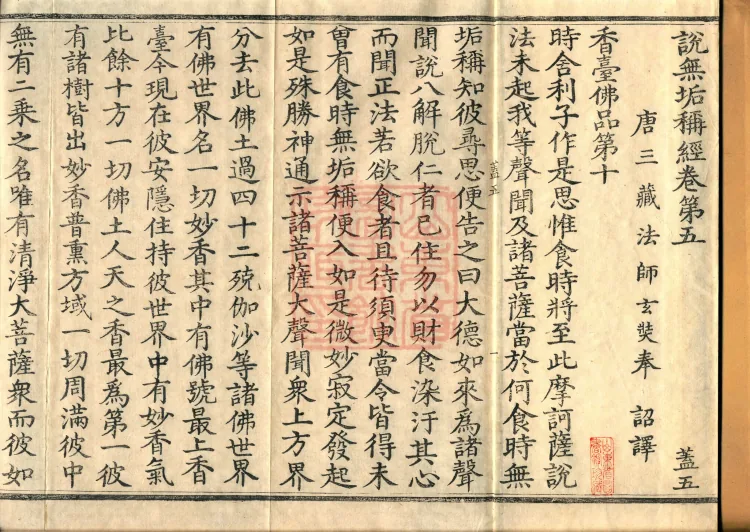 說無垢稱經卷第五 蓋五
唐三藏法師玄奘奉 詔譯
香臺佛品第十
時舍利子作是思惟食時將至此摩訶薩說
法未起我等聲聞及諸菩薩當於何食時無
蓋五 一
垢稱知彼尋思便告之曰大德如來爲諸聲
聞說八解脫仁者已住勿以財食染汙其心
而聞正法若欲食者且待須臾當令皆得未
曾有食時無垢稱便入如是微妙寂定發起
如是殊勝神通示諸菩薩大聲聞衆上方界
分去此佛土過四十二殑伽沙等諸佛世界
有佛世界名一切妙香其中有佛號最上香
臺今現在彼安隱住持彼世界中有妙香氣
比餘十方一切佛土人天之香最爲第一彼
有諸樹皆出妙香普熏方域一切周滿彼中
無有二乘之名唯有清淨大菩薩衆而彼如